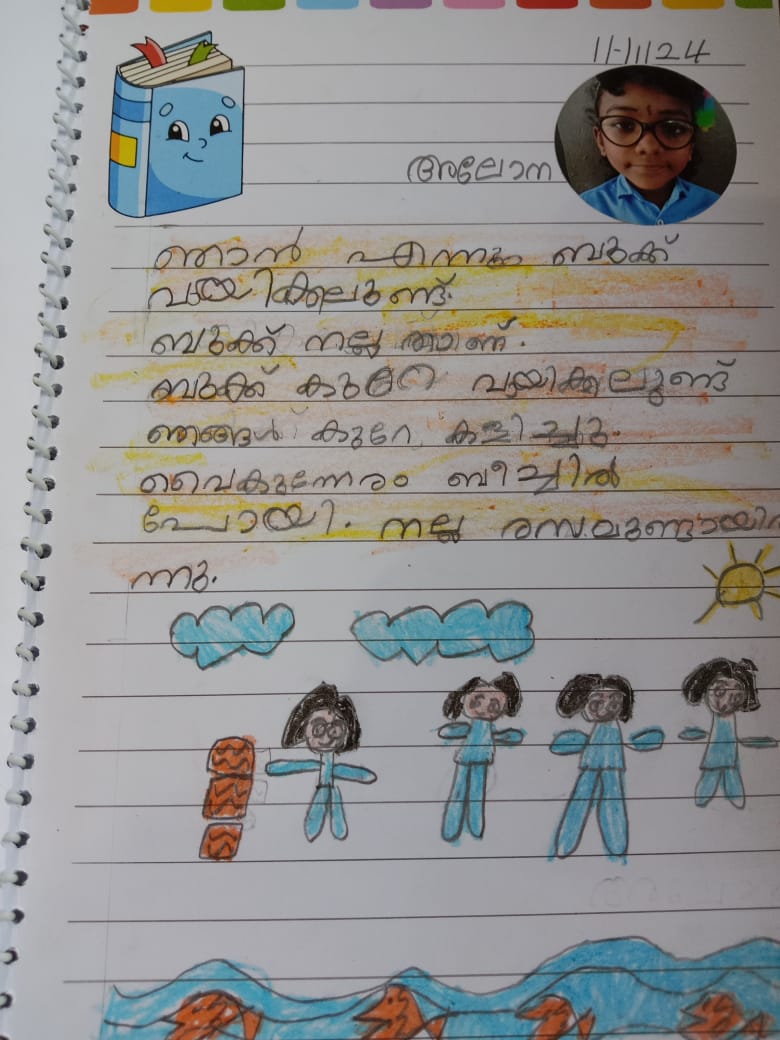 11-11124
അലോന
ഞാൻ എന്നും ബുക്ക്
വയിക്കലുണ്ട്.
ബുക്ക് നല്ലതാണ്.
ബുക്ക് കുറേ വയിക്കലുണ്ട്
ഞങ്ങൾ കുറേ കളിച്ചു.
വൈകുന്നേരം ബീച്ചിൽ
പോയി. നല്ല രസമുണ്ടായിരു
ന്നു.